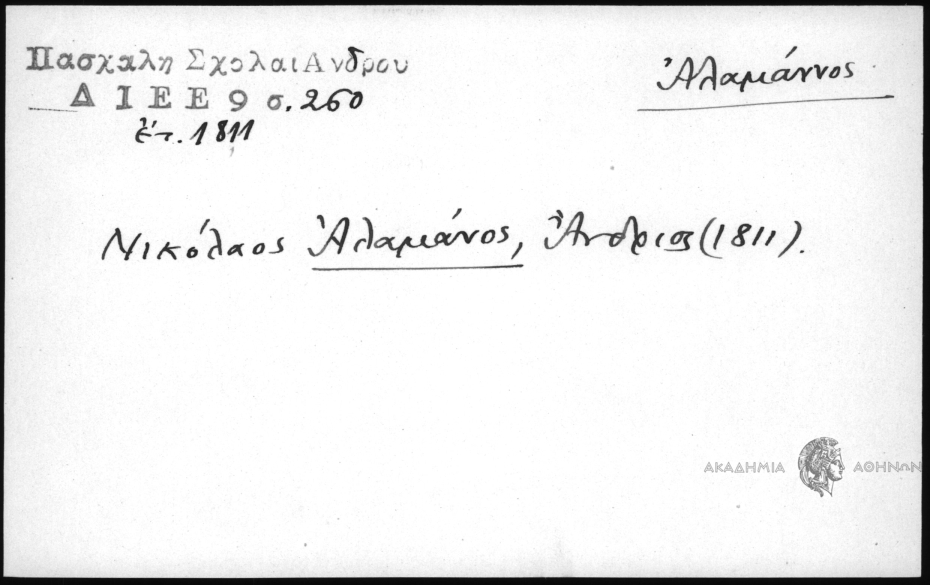 Πασχαλη Σχολαι Ανδρου
Δ Ι Ε Ε 9 σ. 260
ἐτ. 1811
Ἀλαμάννος
Νικόλαος Ἀλαμάνος, Ἄνδριος (1811).
ΑΚΑΔΗΜΙΑ ΑΘΗΝΩΝ